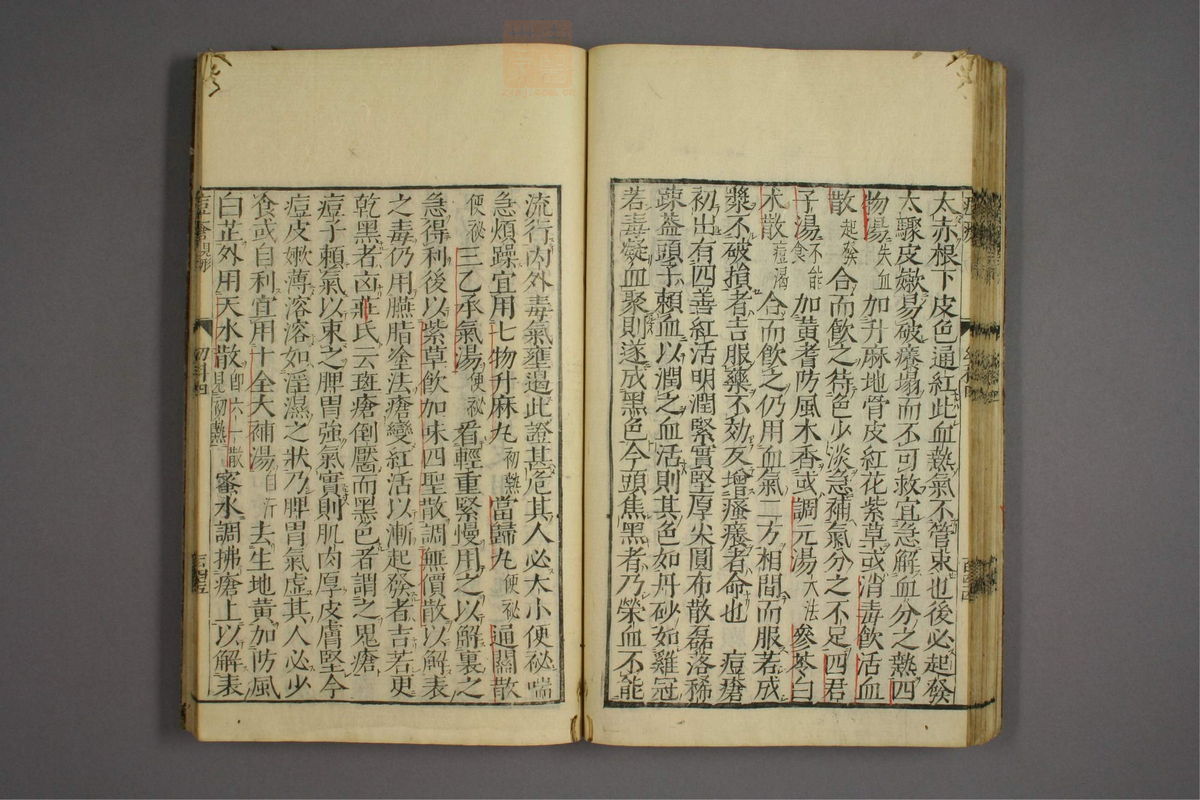 太赤根下皮色通紅此血熱氣不管束也後必起發
太驟皮嫰易破癢塌而不可救宜急解血分之熱四
物湯失血加升麻地骨皮紅花紫草或消毒飲活血
散起發合而飲之待色少淡急補氣分之不足四君
子湯不能食加黄耆防風木香或調元湯大法參苓白
术散痘渴合而飲之仍用血氣二方相間而服若成
漿不破損者吉服藥不効反增瘙癢者命也 痘瘡
初出有四善紅活明潤緊實堅厚尖圓布散磊落稀
踈葢頭子賴血以潤之血活則其色如丹砂如雞冠
若毒凝血聚則遂成黑色今頭焦黑者乃榮血不能
流行内外毒氣壅遏此證甚危其人必大小便祕喘
急煩躁宜用七物升麻丸初熱當歸丸便祕通關散
便祕三乙承氣湯便祕看輕重緊慢用之以解裏之
急得利後以紫草飲加味四聖散調無價散以解表
之毒仍用臙脂塗法瘡變紅活以漸起發者吉若更
乾黑者凶張氏云斑瘡倒靨而黑色者謂之鬼瘡
痘子賴氣以束之脾胃強氣實則肌肉厚皮膚堅今
痘皮嫰薄溶溶如淫濕之狀乃脾胃氣虚其人必少
食或自利宜用十全大補湯自汗去生地黄加防風
白芷外用天水散即六一散見初熱蜜水調拂瘡上以解表